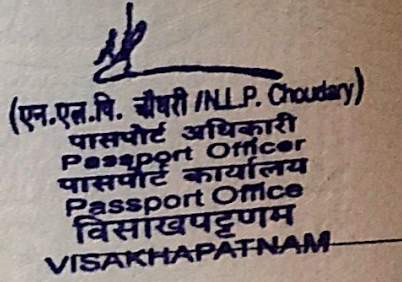 (एन.एल.पि. चौधरी /N.L.P. Choudary)
पासपोर्ट अधिकारी
Passport Officer
पासपोर्ट कार्यालय
Passport Office
विसाखपट्टणम
VISAKHAPATNAM